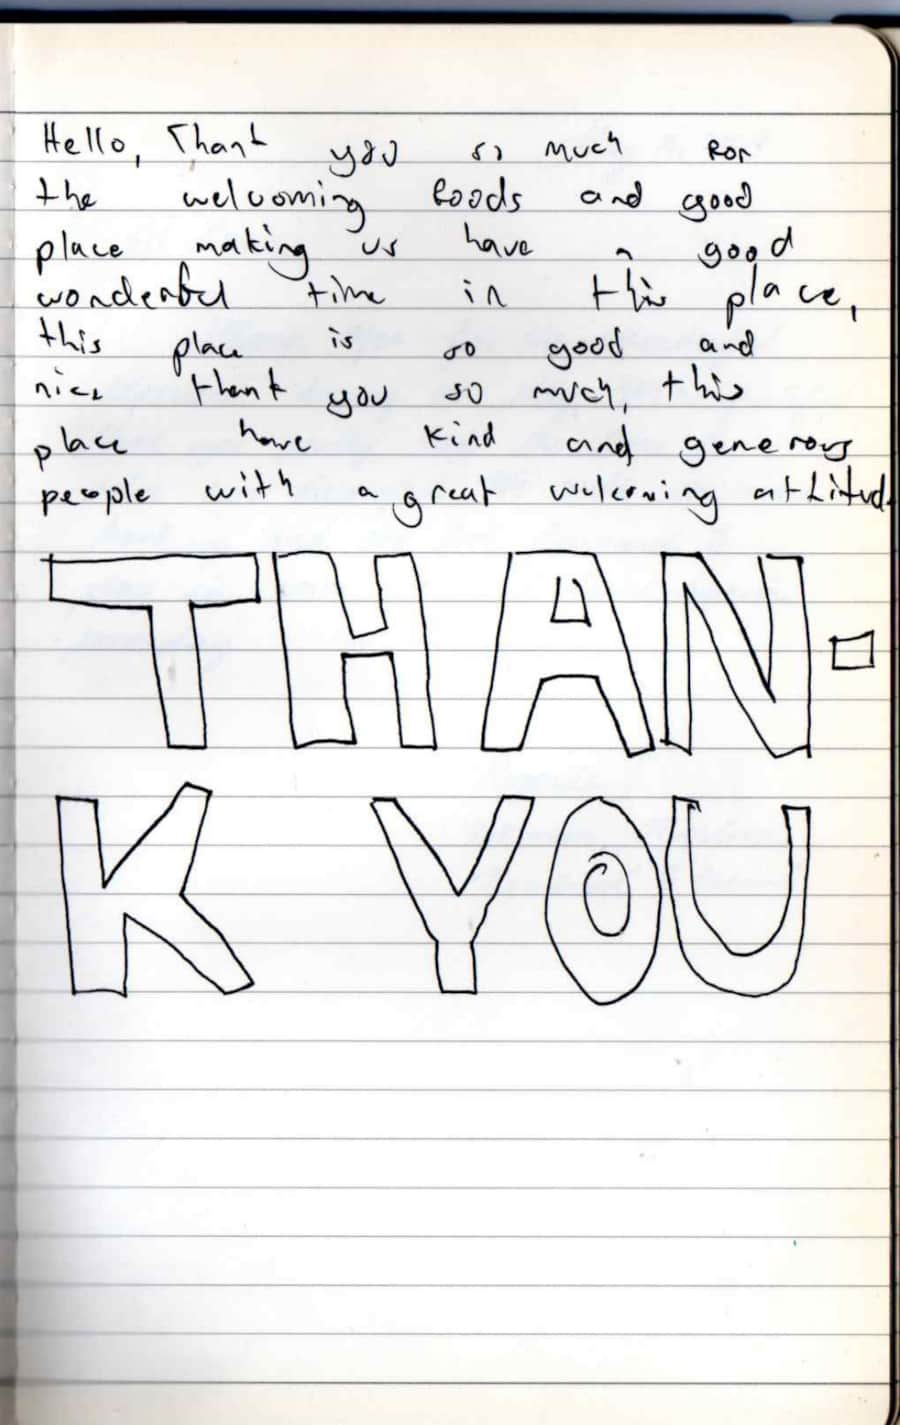 Hello, Thank you so much for
the welcoming foods and good
place making us have a good
wonderful time in this place,
this place is so good and
nice thank you so much, this
place have kind and generous
people with a great welcoming attitude
THAN-
K YOU